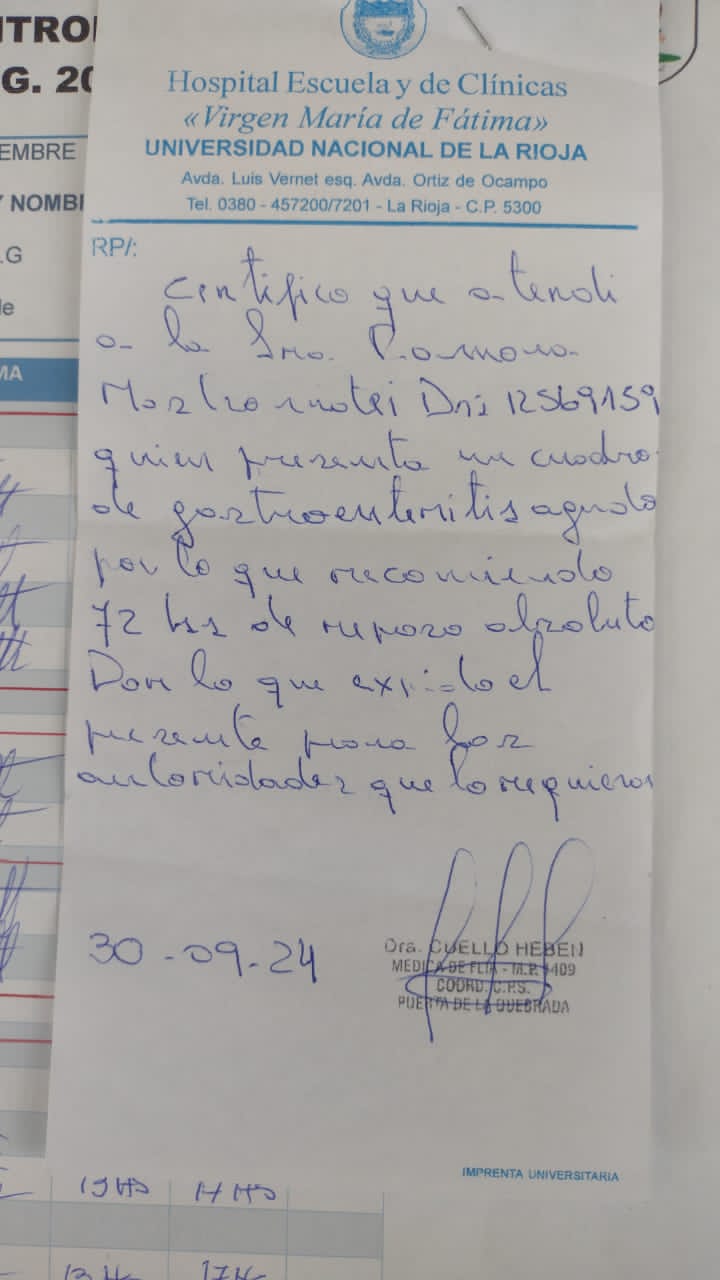 NTRO
G. 20
EMBRE
Y NOMB
.G
MA
Hospital Escuela y de Clínicas
«Virgen María de Fátima»
UNIVERSIDAD NACIONAL DE LA RIOJA
Avda. Luis Vernet esq. Avda. Ortiz de Ocampo
Tel. 0380 - 457200/7201 - La Rioja - C.P. 5300
RP/:
Certifico que atendi
a la Sra. Romona
Dni 12569159
quien presenta un cuadro
de gastroenteritis aguda
por lo que recomiendo
72 hs de reposo absoluto
Por lo que expido el
presente para las
autoridades que lo requieran
30-09-24
Dra. CUELLO HEBEN
MEDICA DE FLIA - M.P. 409
COORD. C.P.S.
PUERTA DE LA QUEBRADA
IMPRENTA UNIVERSITARIA
13 Hs 17 Hs